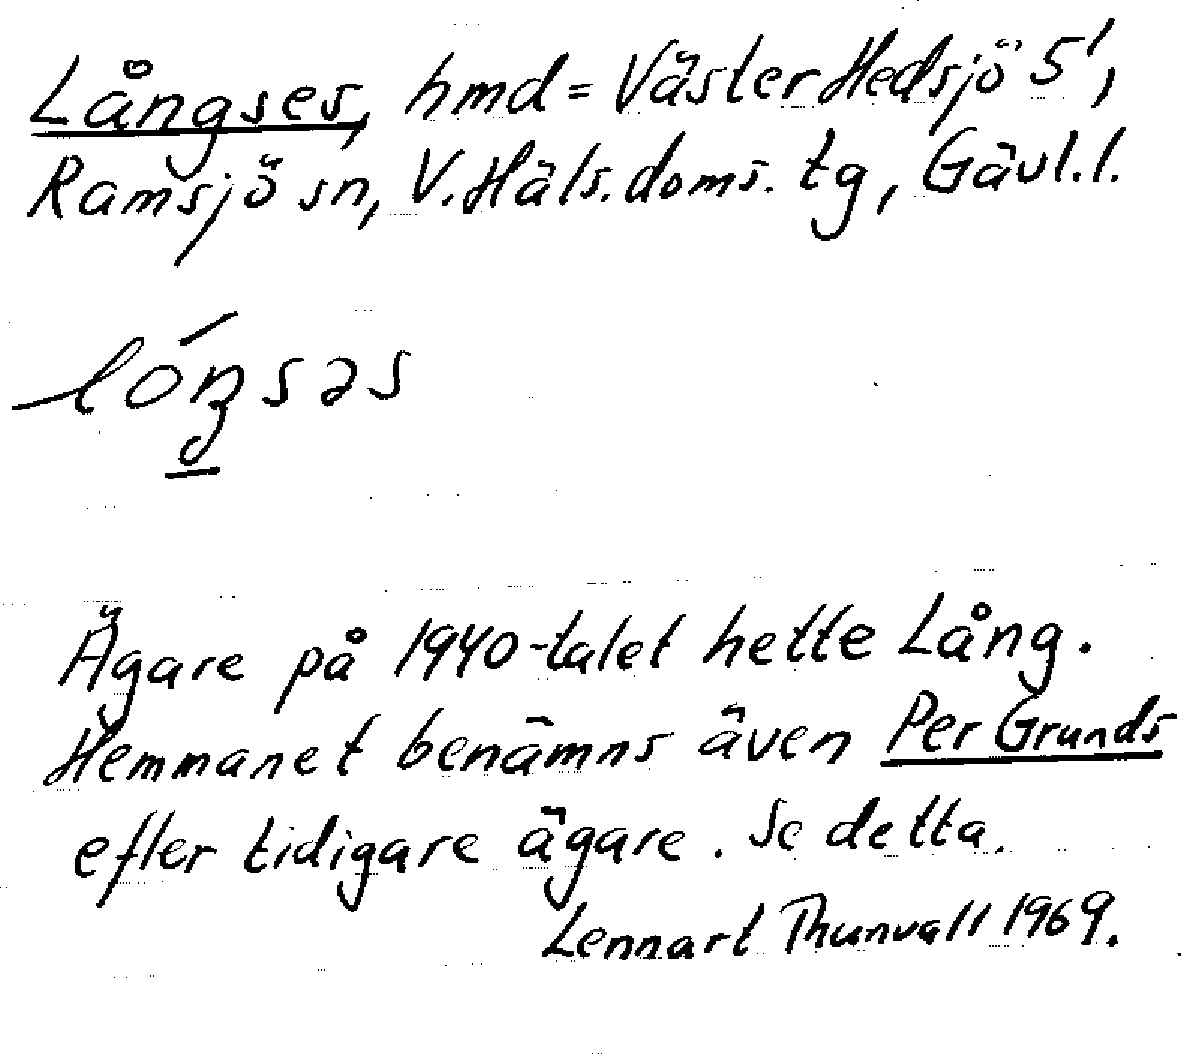 Långses, hmd = Väster Hedsjö 5¹,
Ramsjö sn, V. Häls. doms. tg, Gävl. l.
lóŋsəs
Ägare på 1940-talet hette Lång.
Hemmanet benämns även Per Grunds
efter tidigare ägare. Se detta.
Lennart Thunvall 1969.